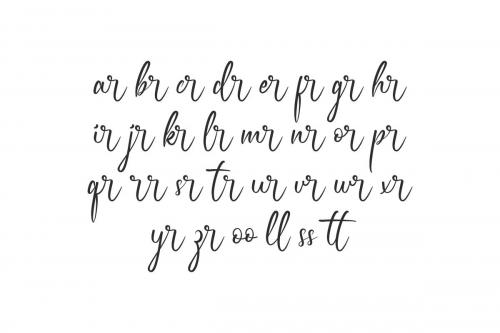 ar br cr dr er fr gr hr
ir jr kr lr mr nr or pr
qr rr sr tr ur vr wr xr
yr zr oo ll ss tt